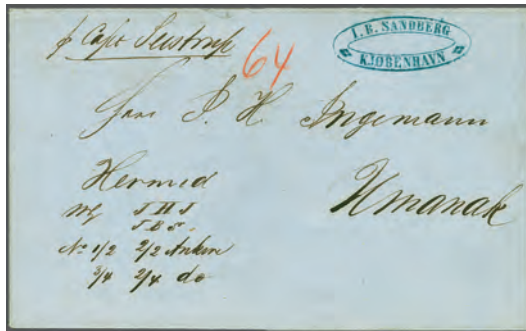 p Capt Seistrup
64
I. B. SANDBERG
KJØBENHAVN
Herr J. H. Ingemann
Umanak
Hermed
Mk J H J
J B S.
No 1/2 2/2 Ankere
3/4 2/4 do